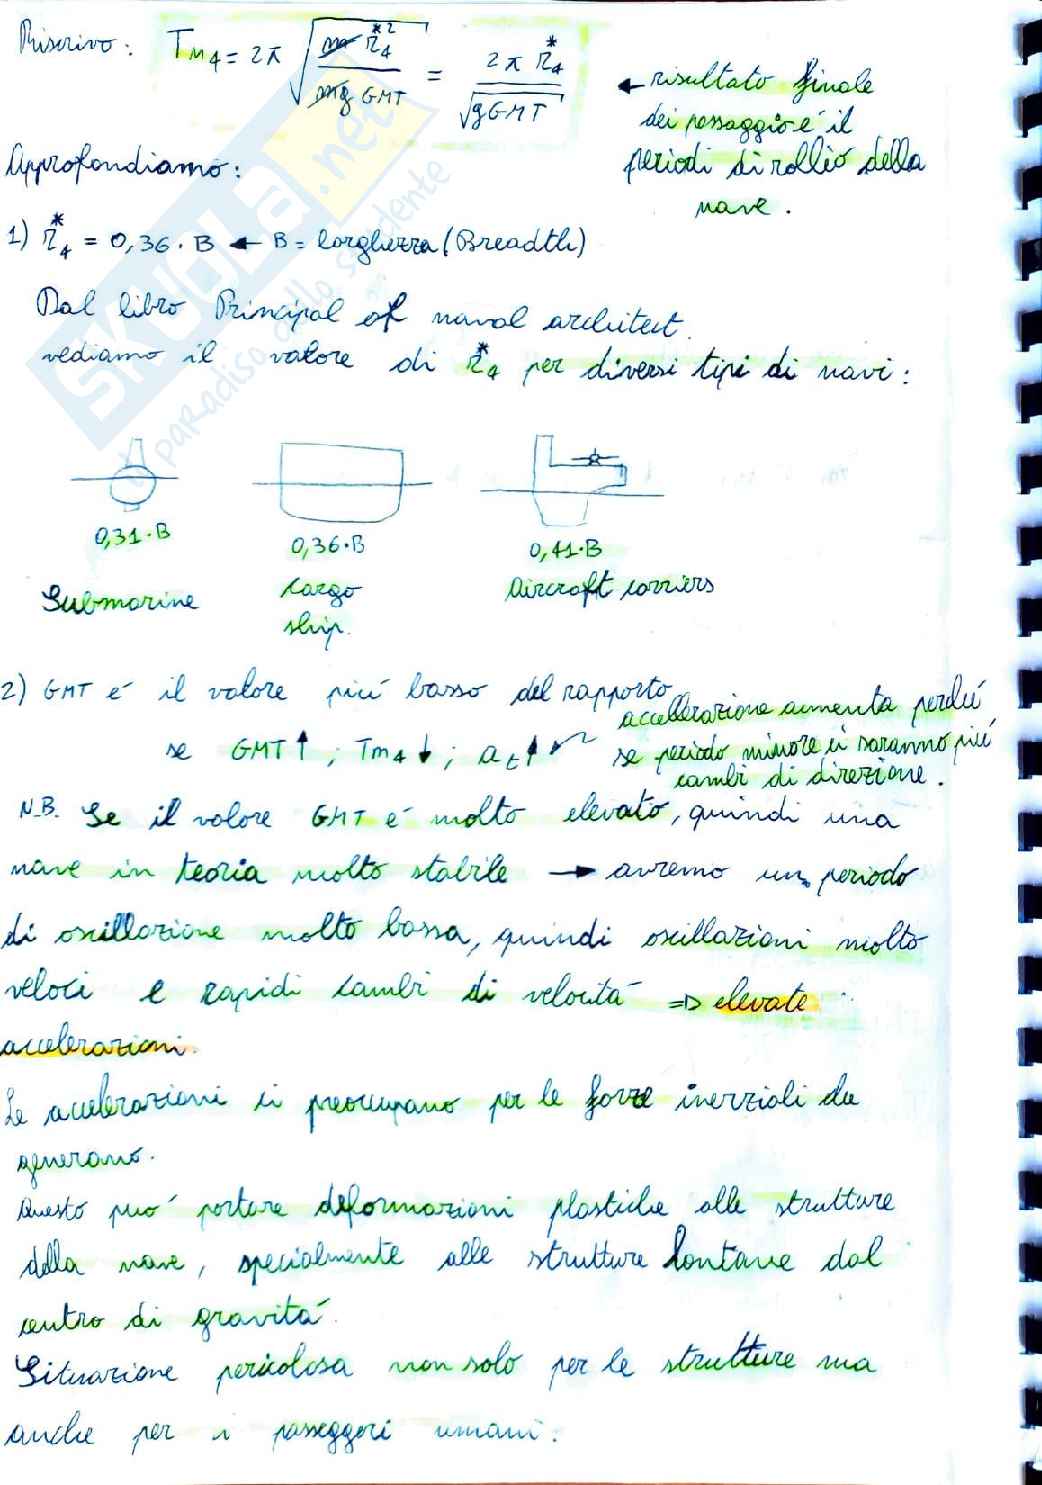 Riscrivo: Tn4 = 2π √(m r*4² / mg GMT) = 2π r*4 / √(g GMT) ← risultato finale
dei passaggio é il
periodi di rollio della
nave.
Approfondiamo:
1) r*4 = 0,36 · B ← B = larghezza (Breadth)
Dal libro Principal of naval architect.
vediamo il valore di r*4 per diversi tipi di navi:
0,31·B 0,36·B 0,41·B
Submarine cargo ship. Aircraft carriers
2) GMT é il valore piú basso del rapporto
se GMT↑ ; Tn4↓ ; at↑
accellerazione aumenta perché
se periodo minore ci saranno piú
cambi di direzione.
N.B. Se il valore GMT é molto elevato, quindi una
nave in teoria molto stabile → avremo un periodo
di oscillazione molto bassa, quindi oscillazioni molto
veloci e rapidi cambi di velocitá => elevate
accelerazioni.
Le accelerazioni ci preoccupano per le forze inerziali che
generano.
Questo puó portare deformazioni plastiche alle strutture
della nave, specialmente alle strutture lontane dal
centro di gravitá.
Situazione pericolosa non solo per le strutture ma
anche per i passeggeri umani.
SKUOLA.net
il paradiso dello studente